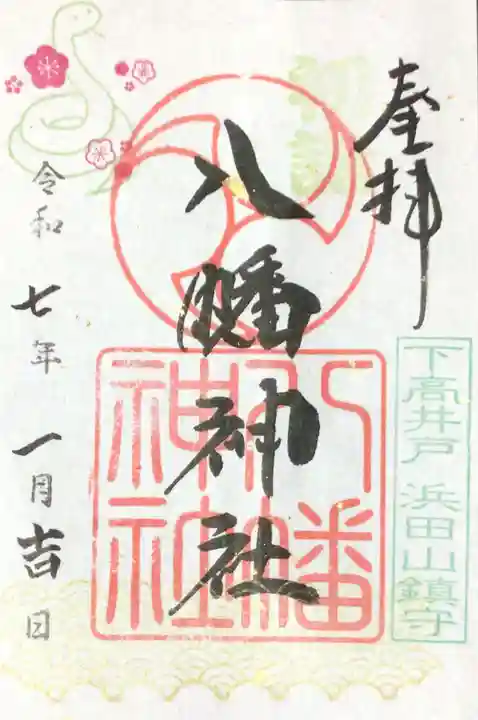 奉拝
下高井戸 浜田山鎮守
八幡神社
八幡
神社
令和七年一月吉日